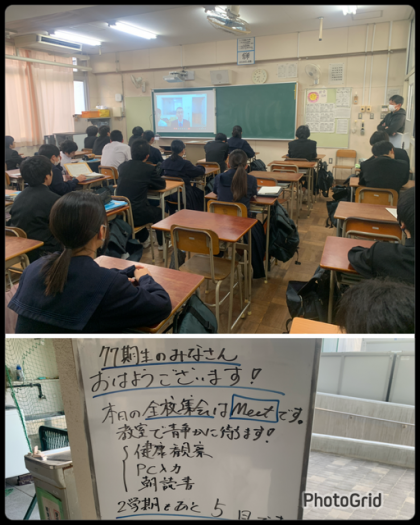 77期生のみなさん
おはようございます!
本日の全校集会はMeetです。
教室で静かに待ちます!
健康観察
PC入力
朝読書
2学期もあと5日
PhotoGrid